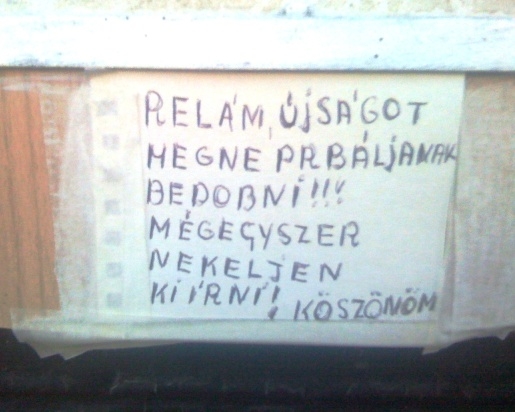 RELÁM, ÚJSÁGOT
MEGNE PRBÁLJANAK
BEDOBNÍ!!!
MÉGEGYSZER
NEKELJEN
KIÍRNÍ! KÖSZÖNÖM